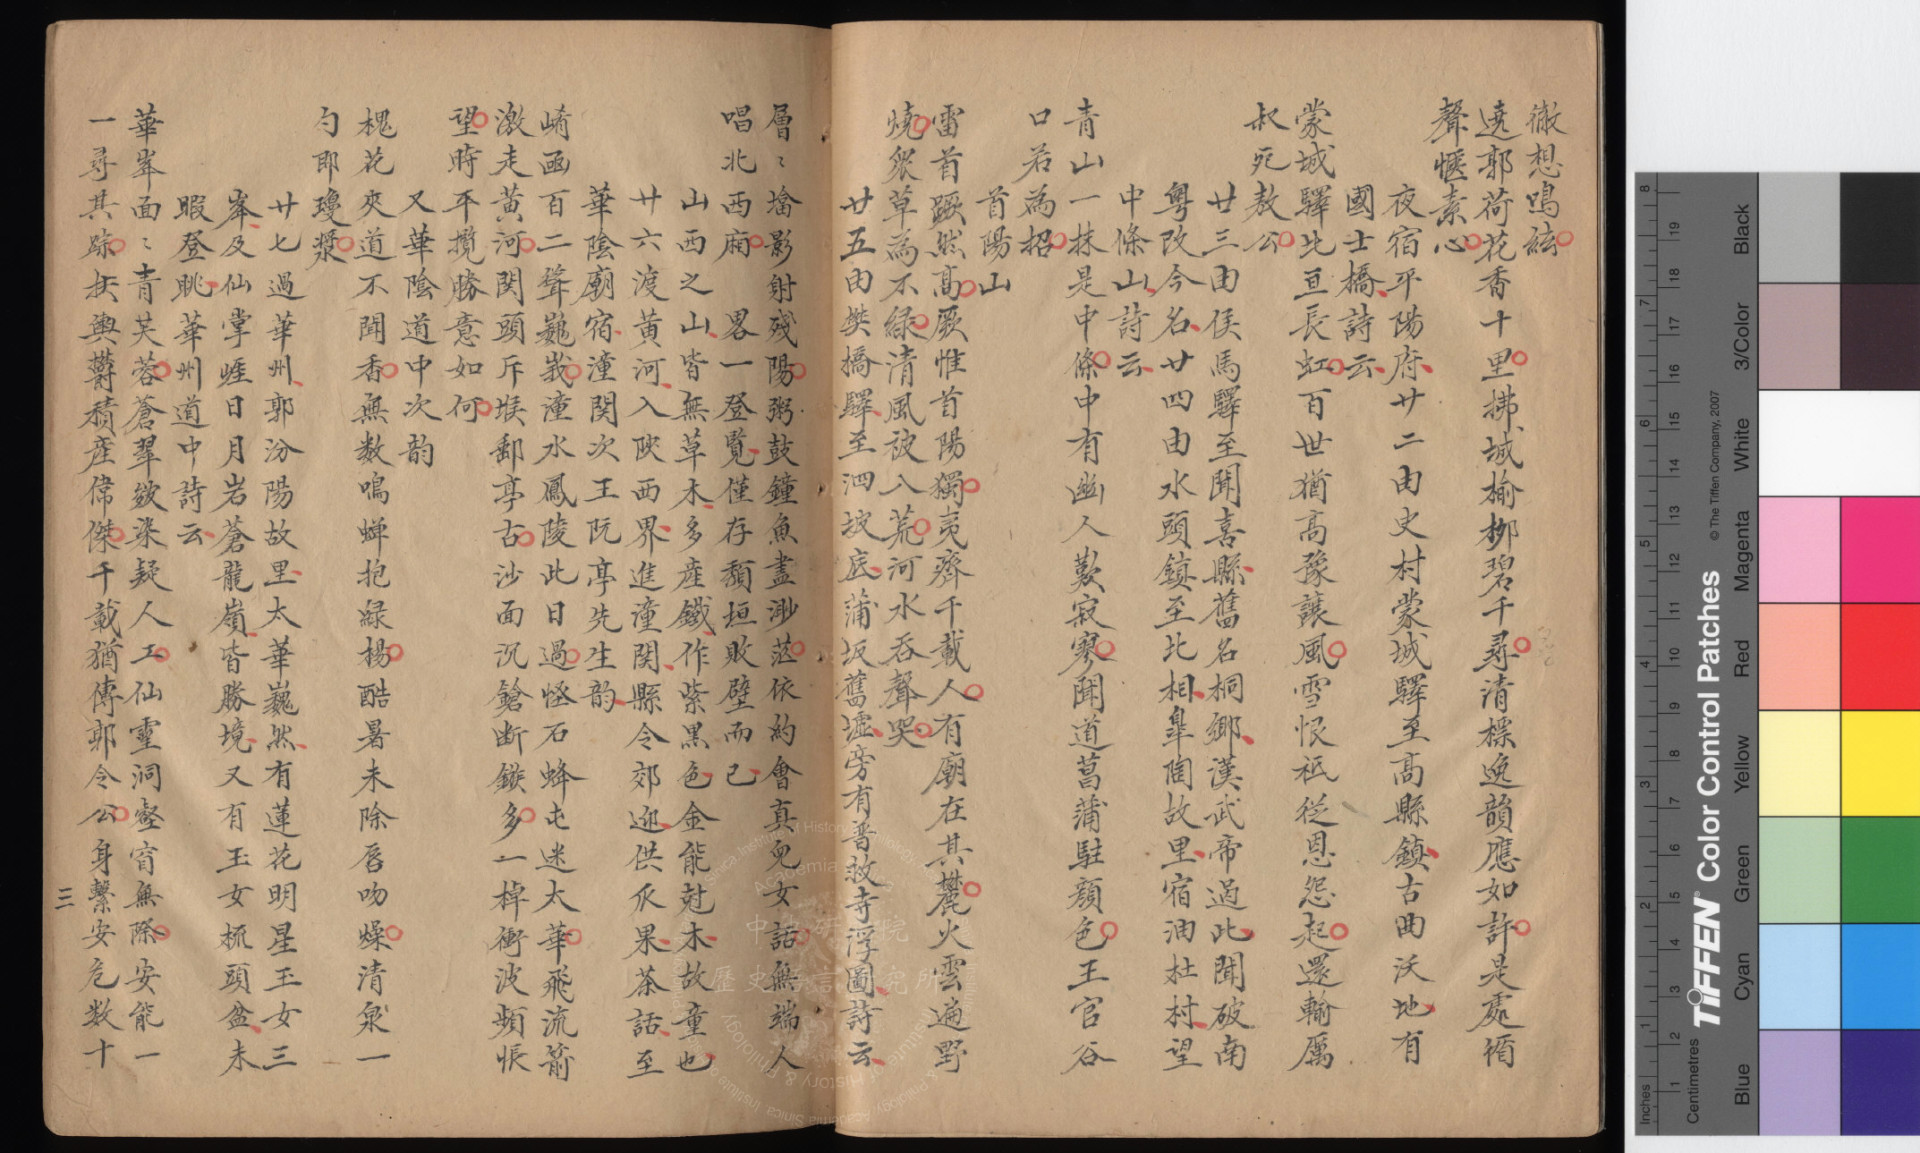 徹想鳴絃
遶郭荷花香十里拂城榆柳碧千尋清標逸韻應如許是處循
聲愜素心
夜宿平陽府廿二由史村蒙城驛至高縣鎮古曲沃地有
國士橋詩云
蒙城驛北亘長虹百世猶高豫讓風雪恨祇從恩怨起還輸厲
叔死敖公
廿三由侯馬驛至聞喜縣舊名桐鄉漢武帝過此聞破南
粵改今名廿四由水頭鎮至北相皐陶故里宿油杜村望
中條山詩云
青山一抹是中條中有幽人歎寂寥聞道菖蒲駐顏色王官谷
口若為招
首陽山
雷首蹶然高厥惟首陽獨夷齊千載人有廟在其麓火雲遍野
燒衆草為不綠清風被八荒河水吞聲哭
廿五由樊橋驛至泗坡底蒲坂舊墟旁有普救寺浮圖詩云
層〻墖影射殘陽粥鼓鐘魚盡渺茫依約會真兒女話無端人
唱北西廂　畧一登覽僅存頹垣敗壁而已
山西之山皆無草木多産鐵作紫黑色金能尅木故童也
廿六渡黃河入陜西界進潼関縣令郊迎供瓜果茶話至
華陰廟宿潼関次王阮亭先生韵
崤函百二聳巍峩潼水鳳陵此日過怪石蜂屯迷太華飛流箭
激走黃河関頭斥堠郵亭古沙面沉鎗断鏃多一棹衝波頻悵
望時平攬勝意如何
又華陰道中次韵
槐花夾道不聞香無数鳴蟬抱綠楊酷暑未除唇吻燥清泉一
勺即瓊漿
廿七過華州郭汾陽故里太華巍然有蓮花明星玉女三
峯及仙掌崕日月岩蒼龍嶺皆勝境又有玉女梳頭盆未
暇登眺華州道中詩云
華峯面〻青芙蓉蒼翠斂染疑人工仙靈洞壑窅無際安能一
一尋其踪扶輿欝積產偉傑千載猶傳郭令公身繫安危数十
三